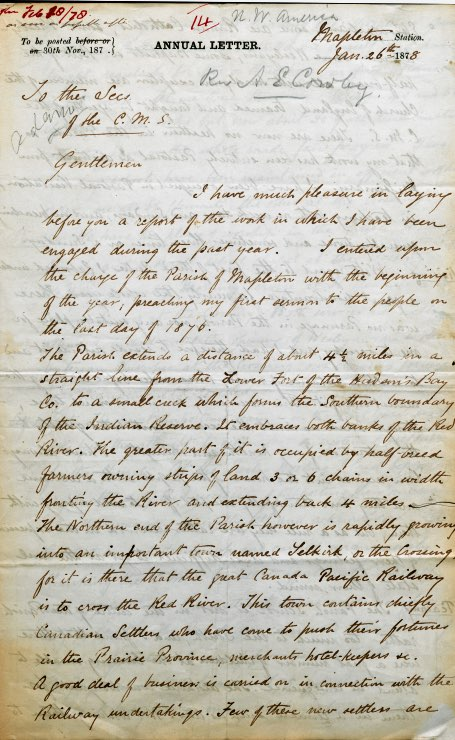 Feb 28/78
14
N. W. America
To be posted before or
on 30th Nov., 187 .
ANNUAL LETTER.
Mapleton Station.
Jan. 26th 1878
Rev A. E. Cowley
To the Secs
of the C. M. S.
Gentlemen
I have much pleasure in laying
before you a report of the work in which I have been
engaged during the past year. I entered upon
the charge of the Parish of Mapleton with the beginning
of the year, preaching my first sermon to the people on
the last day of 1876.
The Parish extends a distance of abut 4½ miles in a
straight line from the Lower Fort of the Hudson's Bay
Co. to a small creek which forms the Southern boundary
of the Indian Reserve. It embraces both banks of the Red
River. The greater part of it is occupied by half breed
farmers owning strips of land 3 or 6 chains in width
fronting the River and extending back 4 miles –
The Northern end of the Parish however is rapidly growing
into an important town named Selkirk, or the Crossing
for it is there that the great Canada Pacific Railway
is to cross the Red River. This town contains chiefly
Canadian Settlers who have come to push their fortunes
in the Prairie Province, merchants hotel-keepers &c.
A good deal of business is carried on in connection with the
Railway undertakings. Few of these new settlers are